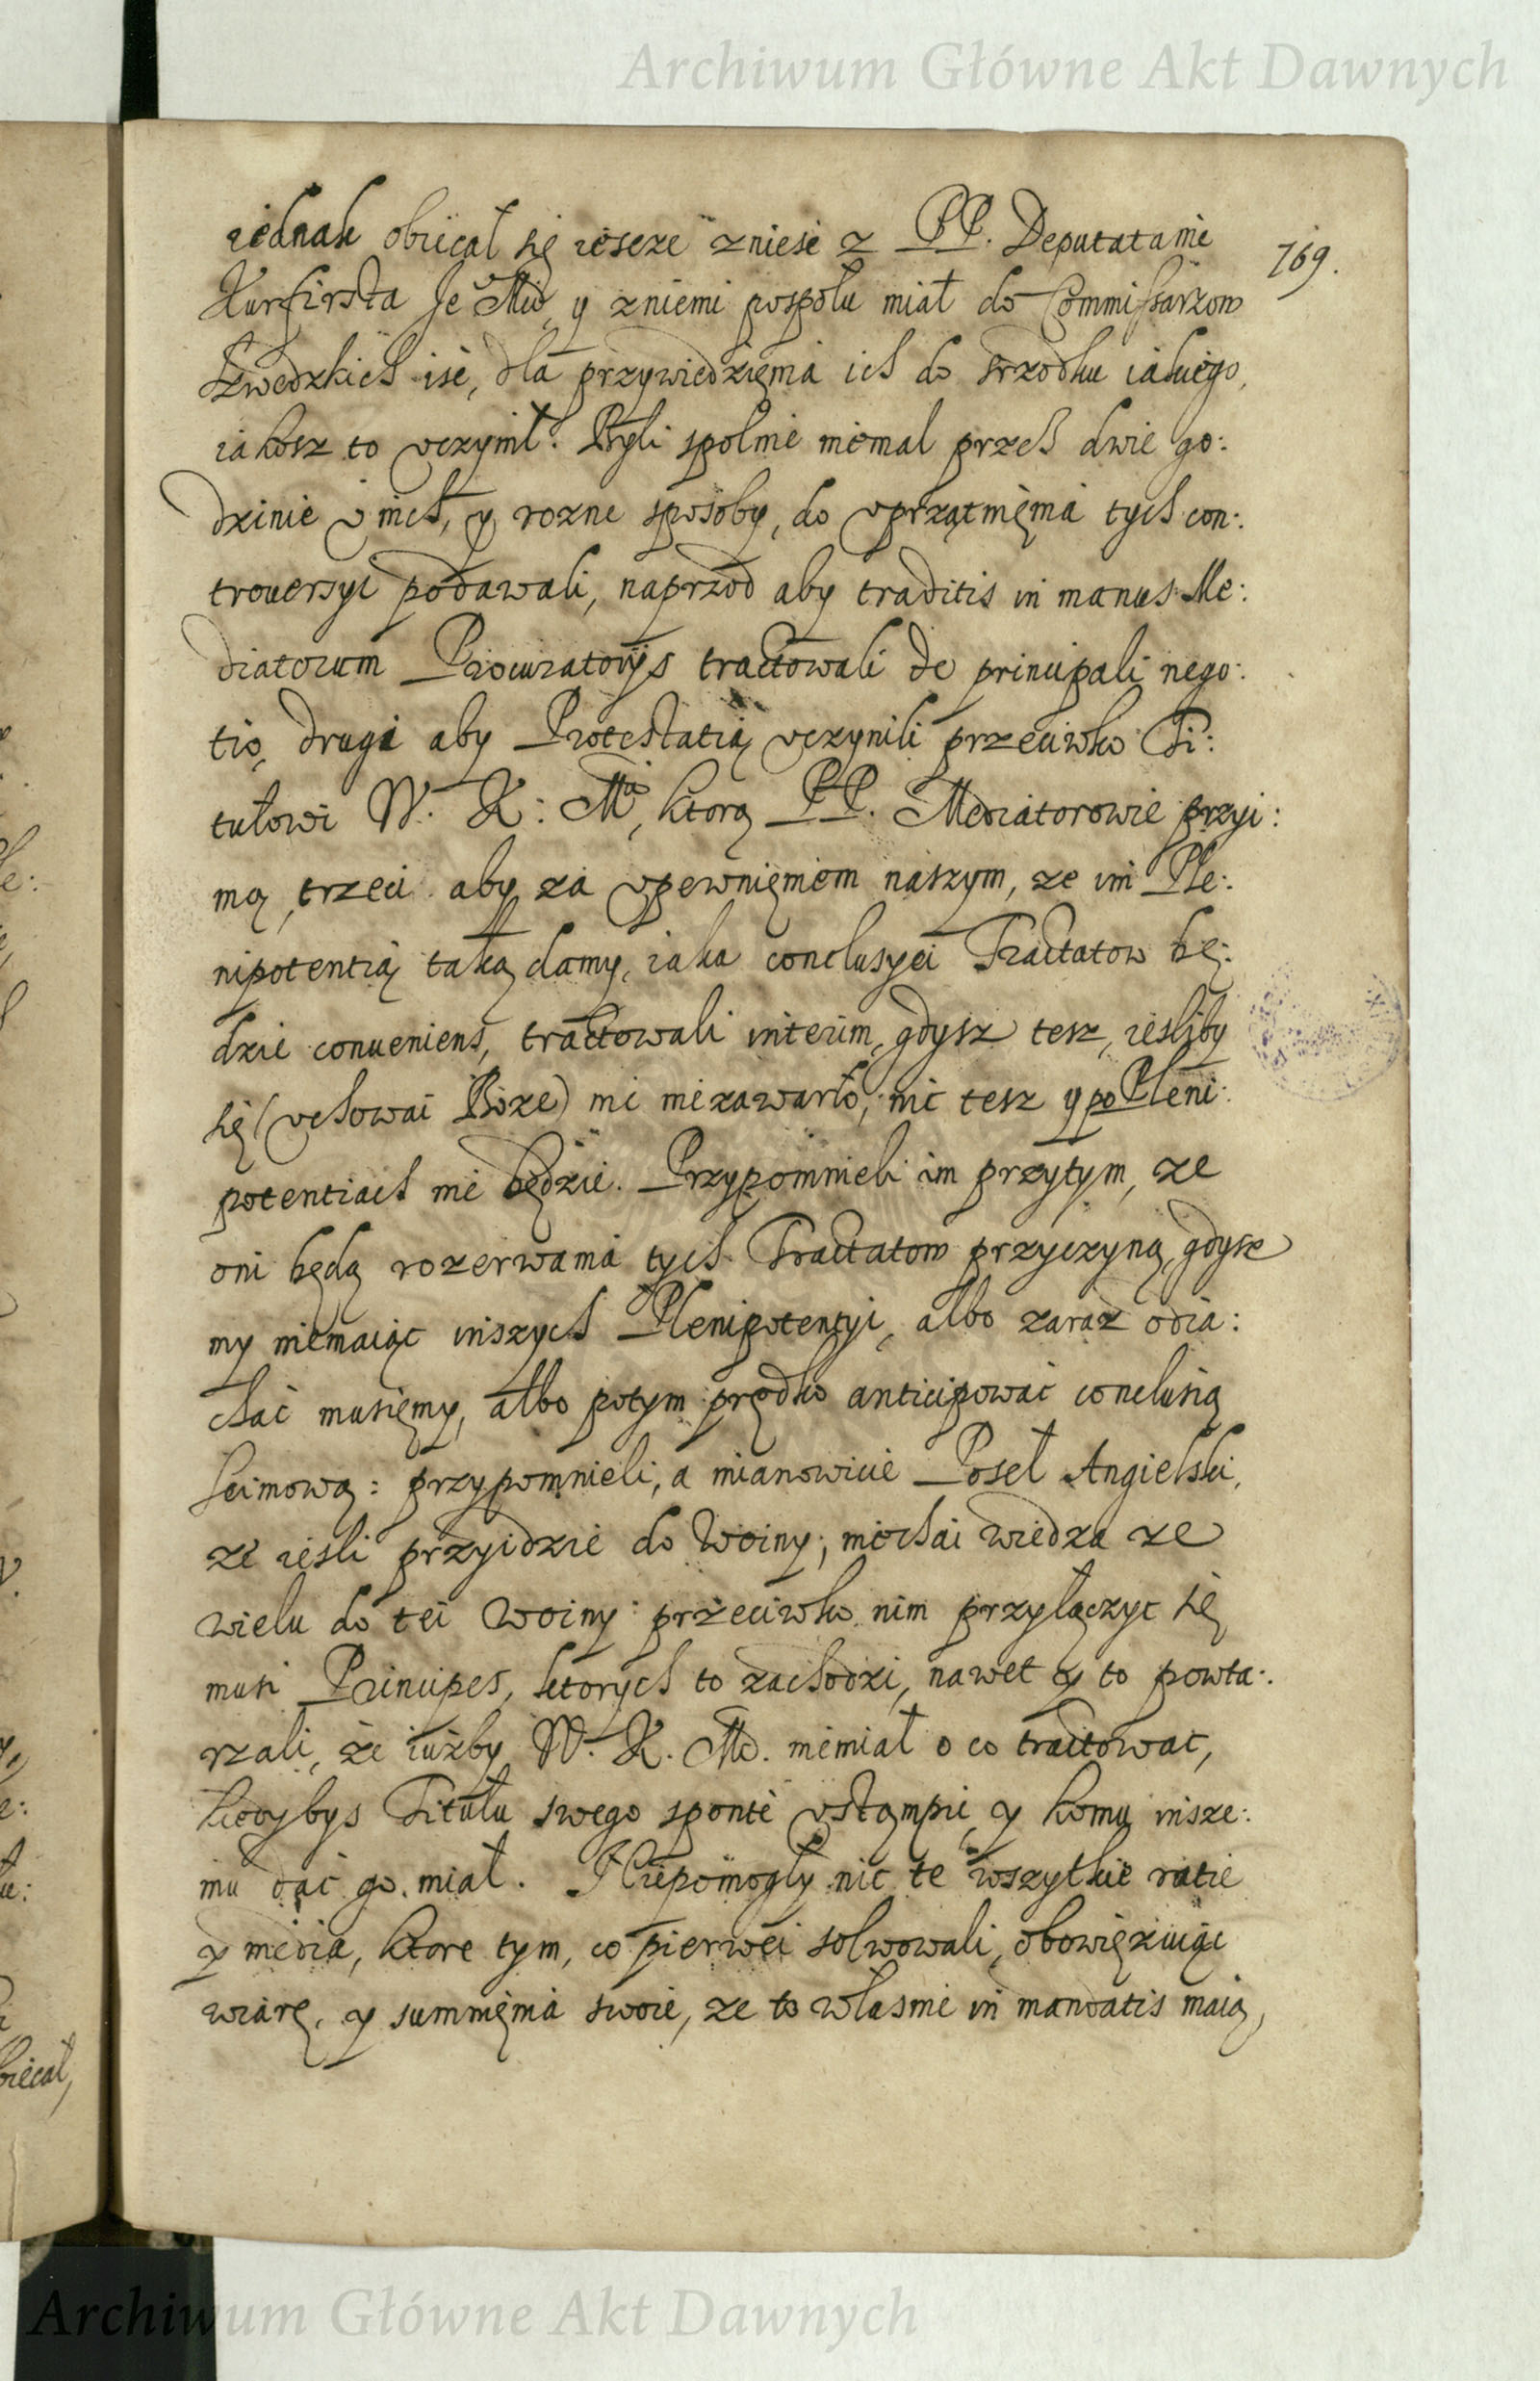 Archiwum Główne Akt Dawnych
169.
iednak obiecał się iescze zniesc z PP. Deputatami
Kurfirsta Je Mci, y zniemi pospołu miał do Commissarzow
Szwedzkich isc, dla przywiedzięnia ich do srzodku iakiego,
iakosz to vczynił. Byli spolnie niemal przes dwie go:
dzinie v nich, y rozne sposoby, do vprzątnięnia tych con:
trouersyi podawali, naprzod aby traditis in manus Me:
diatorum Procuratorijs tractowali de principali nego:
tio, drugi aby Protestatią vczynili przeciwko Ti:
tułowi W. K: Mci, ktorą PP. Mediatorowie przyi:
mą, trzeci aby za vpewnięniem naszym, ze im Ple:
nipotentią taką damy, iaka conclusyei Tractatow bę:
dzie conueniens, tractowali interim, gdysz tesz, iesliby
się (vchowai Boze) nic niezawarło, nic tesz y po Pleni:
potentiach nie będzie. Przypomnieli im przytym, ze
oni będą rozerwania tych Tractatow przyczyną, gdysz
my niemaiąc inszych Plenipotentyi, albo zaraz odia:
chać musięmy, albo potym prędko anticipować conclusią
Seimową: przypomnieli, a mianowicie Poseł Angielski,
ze iesli przyidzie do Woiny, niechai wiedzą ze
wielu do tei Woiny przeciwko nim przyłączyc się
musi Principes, ktorych to zachodzi, nawet y to powta:
rzali, że iużby W. K. Mć. niemiał o co tractowac,
kiedybys Titułu swego sponte vstąmpic, y komu insze:
mu dać go miał. Niepomogły nic te wszytkie ratie
y media, ktore tym, co pierwei solwowali, obowięzuiąc
wiarę, y sumnięnia swoie, ze to własnie in mandatis maią,
biecał,
Archiwum Główne Akt Dawnych